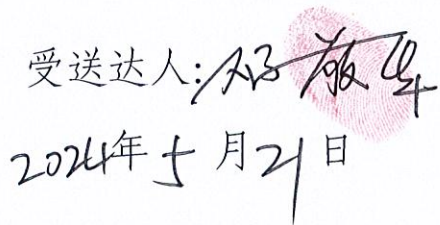 受送达人:
2024年5月21日